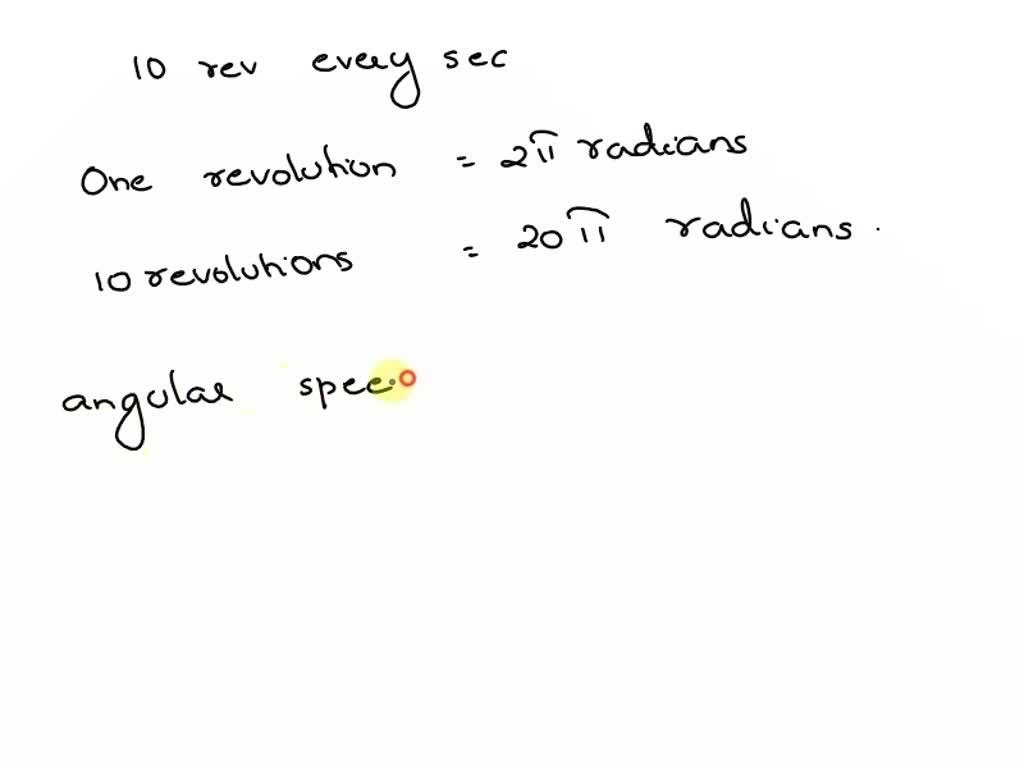 10 rev every sec
One revolution = 2π radians
10 revolutions = 20π radians.
angular spee